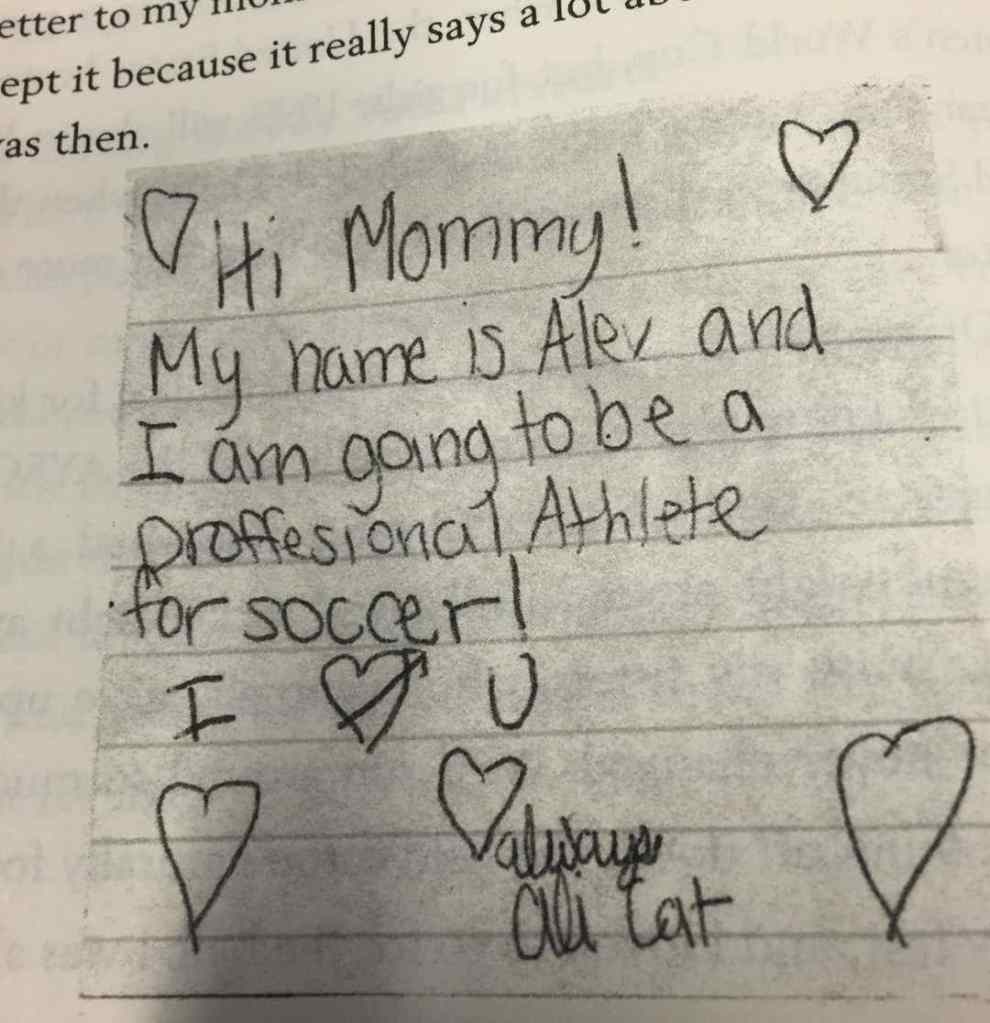 etter to my
ept it because it really says a lot
as then.
♡ Hi Mommy! ♡
My name is Alex and
I am going to be a
proffesional Athlete
for soccer!
I ♡ U
♡ always
Ali Cat